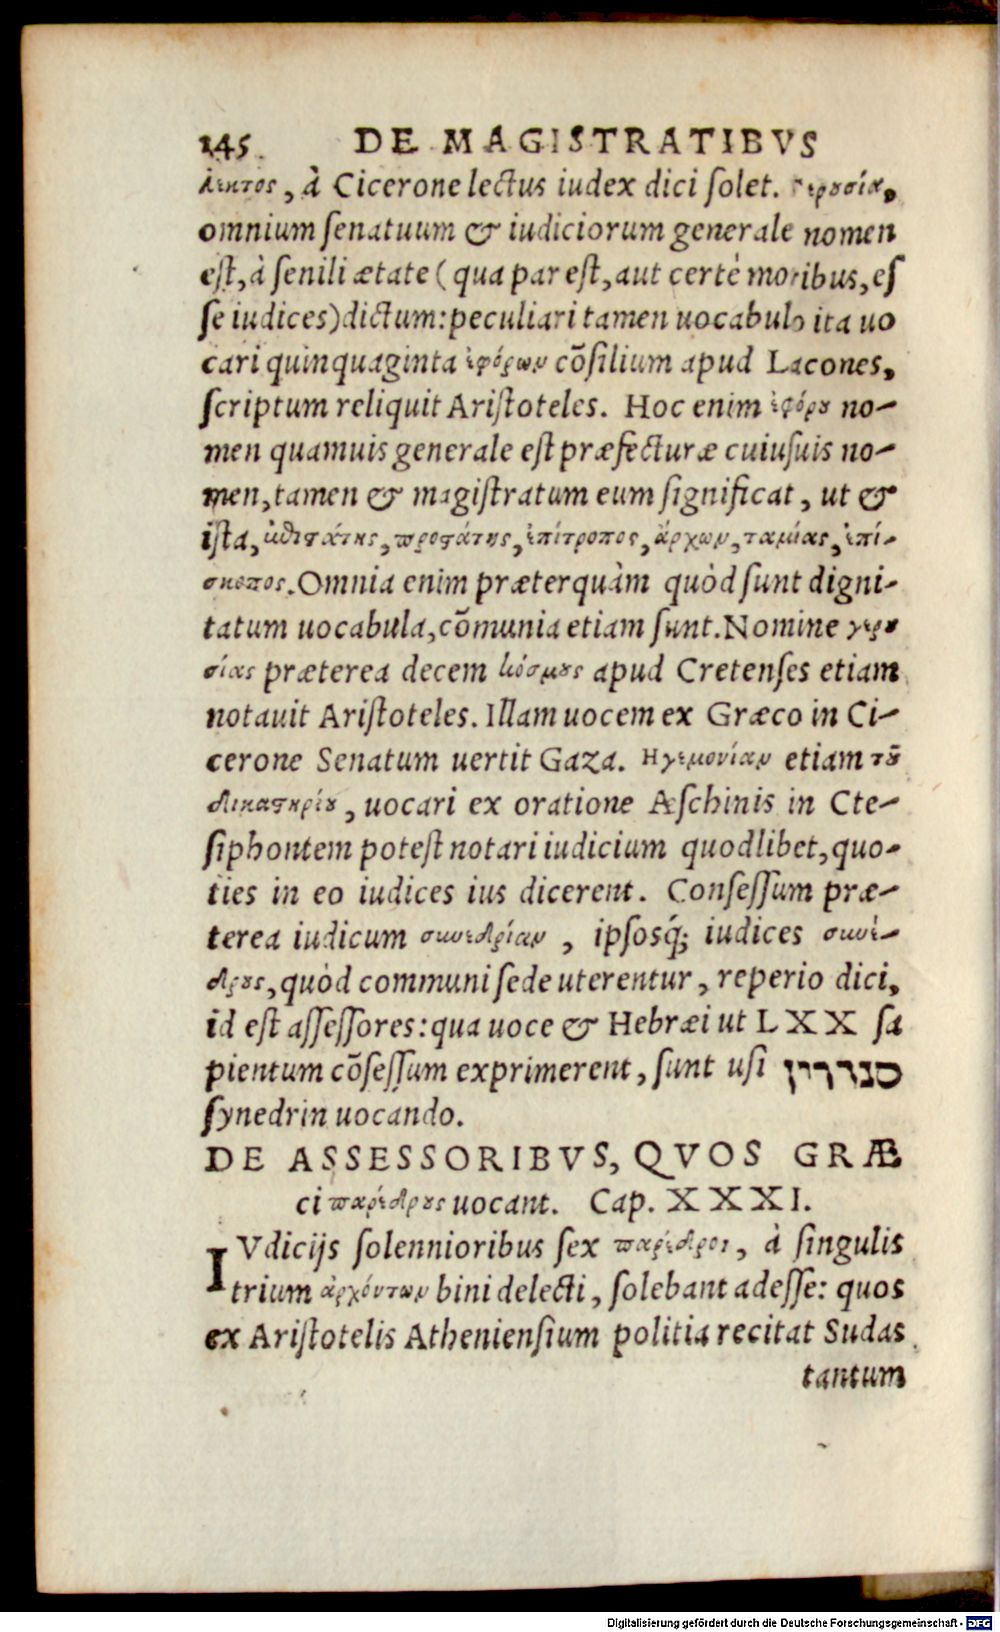 145 DE MAGISTRATIBVS
λεκτος, à Cicerone lectus iudex dici ſolet. Γερουσία,
omnium ſenatuum & iudiciorum generale nomen
eſt, à ſenili ætate (qua par eſt, aut certè moribus, eſ
ſe iudices) dictum: peculiari tamen uocabulo ita uo
cari quinquaginta ἐφόρων cõſilium apud Lacones,
ſcriptum reliquit Ariſtoteles. Hoc enim ἐφόρου no-
men quamuis generale eſt præfecturæ cuiuſuis no-
men, tamen & magiſtratum eum ſignificat, ut &
iſta, ἐπιστάτης, προστάτης, ἐπίτροπος, ἄρχων, ταμίας, ἐπί-
σκοπος. Omnia enim præterquàm quòd ſunt digni-
tatum uocabula, cõmunia etiam ſunt. Nomine γερου
σίας præterea decem κόσμους apud Cretenſes etiam
notauit Ariſtoteles. Illam uocem ex Græco in Ci-
cerone Senatum uertit Gaza. Ηγεμονίαν etiam τοῦ
δικαστηρίου, uocari ex oratione Æſchinis in Cte-
ſiphontem poteſt notari iudicium quodlibet, quo-
ties in eo iudices ius dicerent. Conſeſſum præ-
terea iudicum συνεδρίαν, ipſosq́; iudices συνέ-
δρους, quòd communi ſede uterentur, reperio dici,
id eſt aſſeſſores: qua uoce & Hebræi ut LXX ſa
pientum cõſeſſum exprimerent, ſunt uſi סנדרין
ſynedrin uocando.
DE ASSESSORIBVS, QVOS GRÆ
ci παρέδρους uocant. Cap. XXXI.
IVdicijs ſolennioribus ſex παρέδροι, à ſingulis
trium ἀρχόντων bini delecti, ſolebant adeſſe: quos
ex Ariſtotelis Athenienſium politia recitat Sudas
tantum
Digitalisierung gefördert durch die Deutsche Forschungsgemeinschaft - DFG